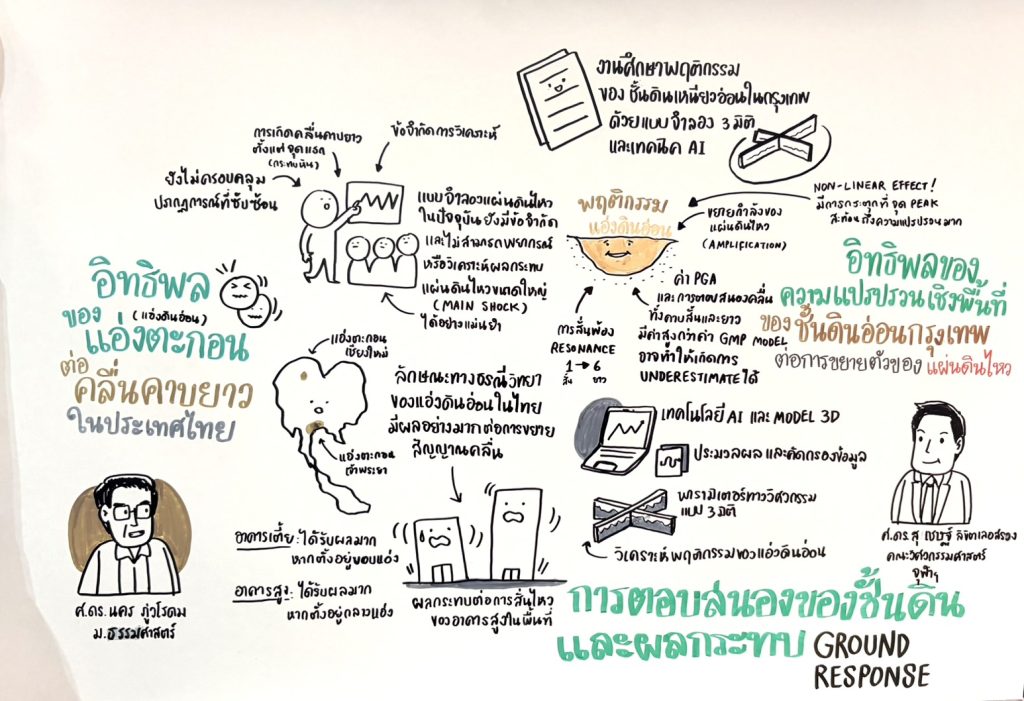 งานศึกษาพฤติกรรม
ของ ชั้นดินเหนียวอ่อนในกรุงเทพ
ด้วยแบบจำลอง 3 มิติ
และเทคนิค AI
การเกิดคลื่นคาบยาว
ตั้งแต่จุดแรก
ข้อจำกัดการวิเคราะห์
ยังไม่ครอบคลุม
ปรากฏการณ์ที่ซับซ้อน
แบบจำลองแผ่นดินไหว
ในปัจจุบันยังมีข้อจำกัด
และไม่สามารถพยากรณ์
หรือวิเคราะห์ผลกระทบ
แผ่นดินไหวขนาดใหญ่
(MAIN SHOCK)
ได้อย่างแม่นยำ
อิทธิพล
ของ (แอ่งดินอ่อน)
แอ่งตะกอน
ต่อ
คลื่นคาบยาว
ในประเทศไทย
แอ่งตะกอน
เชียงใหม่
แอ่งตะกอน
เจ้าพระยา
ลักษณะทางธรณีวิทยา
ของแอ่งดินอ่อนในไทย
มีผลอย่างมากต่อการขยาย
สัญญาณคลื่น
อาคารเตี้ย : ได้รับผลมาก
หากตั้งอยู่ขอบแอ่ง
อาคารสูง : ได้รับผลมาก
หากตั้งอยู่กลางแอ่ง
ผลกระทบต่อการสั่นไหว
ของอาคารสูงในพื้นที่
ศ.ดร.นคร ภู่วโรดม
ม.ธรรมศาสตร์
พฤติกรรม
แอ่งดินอ่อน
ขยายกำลังของ
แผ่นดินไหว
(AMPLIFICATION)
NON-LINEAR EFFECT!
มีการกระตุกที่จุด PEAK
สะท้อนถึงความแปรปรวนมาก
การสั่นพ้อง
RESONANCE
1 → 6
สั้น ยาว
ค่า PGA
และการตอบสนองคลื่น
ทั้งคาบสั้นและยาว
มีค่าสูงกว่าค่า GMP MODEL
อาจทำให้เกิดการ
UNDERESTIMATE ได้
อิทธิพลของ
ความแปรปรวนเชิงพื้นที่
ของ ชั้นดินอ่อนกรุงเทพ
ต่อการขยายตัวของ แผ่นดินไหว
เทคโนโลยี AI และ MODEL 3D
ประมวลผล และคัดกรองข้อมูล
พารามิเตอร์ทางวิศวกรรม
แบบ 3 มิติ
วิเคราะห์พฤติกรรมของแอ่งดินอ่อน
คณะวิศวกรรมศาสตร์
จุฬาฯ
การตอบสนองของชั้นดิน
และผลกระทบ GROUND
RESPONSE